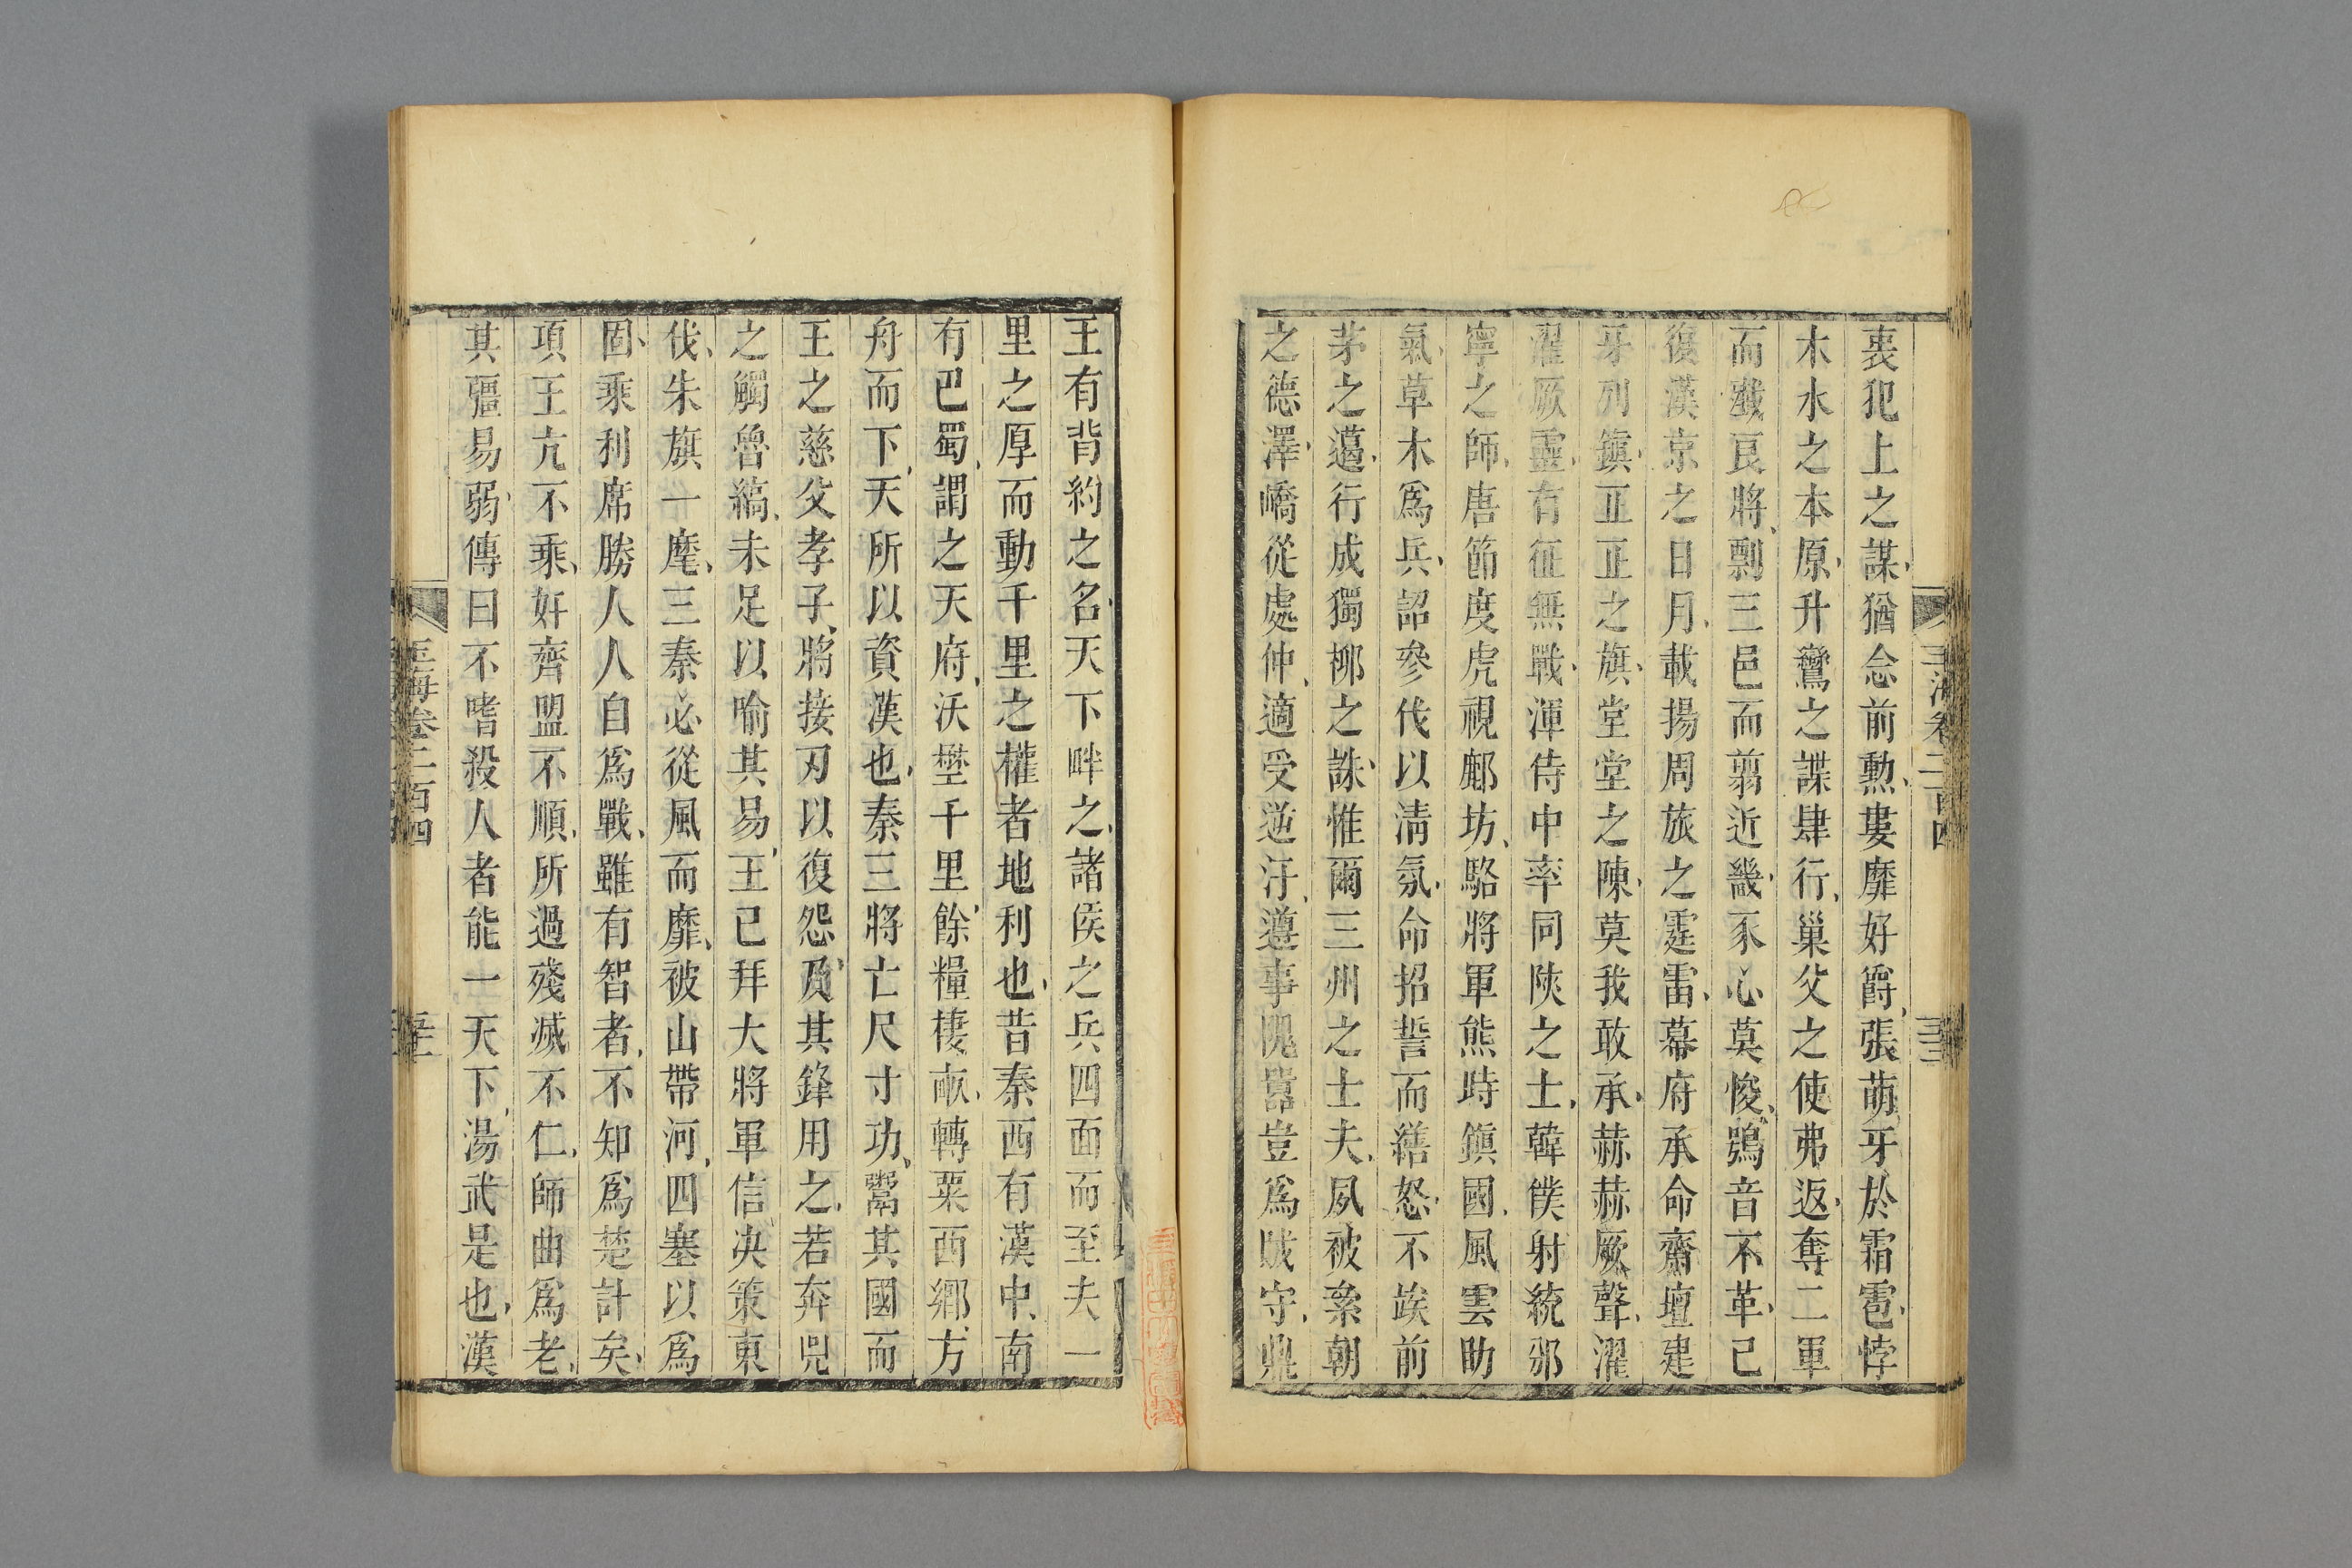 裵犯上之謀猶念前勲婁靡好爵張萌牙於霜雹悖
木水之本原升鸞之諜肆行巢父之使弗返奪二軍
而戕良將剽三邑而翦近畿豕心莫悛鴞音不革已
復漢京之日月載揚周旅之霆雷幕府承命齋壇建
牙列鎭正正之旗堂堂之陳莫我敢承赫赫厥聲濯
濯厥靈有征無戰渾侍中率同陜之士韓僕射統邠
寧之師唐節度虎視鄜坊駱將軍熊時鎭國風雲助
氣草木爲兵詔參伐以淸氛命招誓而繕怒不竢前
茅之邁行成獨栁之誅惟爾三州之士夫夙被累朝
之德澤嶠從處仲適受逆汙遵事隗囂豈爲賊守鼎
王有背約之名天下畔之諸侯之兵四面而至夫一
里之厚而動千里之權者地利也昔秦西有漢中南
有巴蜀謂之天府沃壄千里餘糧棲畝轉粟西郷方
舟而下天所以資漢也秦三將亡尺寸功鬻其國而
王之慈父孝子將接刃以復怨及其鋒用之若奔兕
之觸魯縞未足以喻其易王已拜大將軍信决策東
伐朱旗一麾三秦必從風而靡被山帶河四塞以爲
固乘利席勝人人自爲戰雖有智者不知爲楚計矣
項王亢不乘好齊盟不順所過殘滅不仁師曲爲老
其彊易弱傳曰不嗜殺人者能一天下湯武是也漢
玉海卷二百四